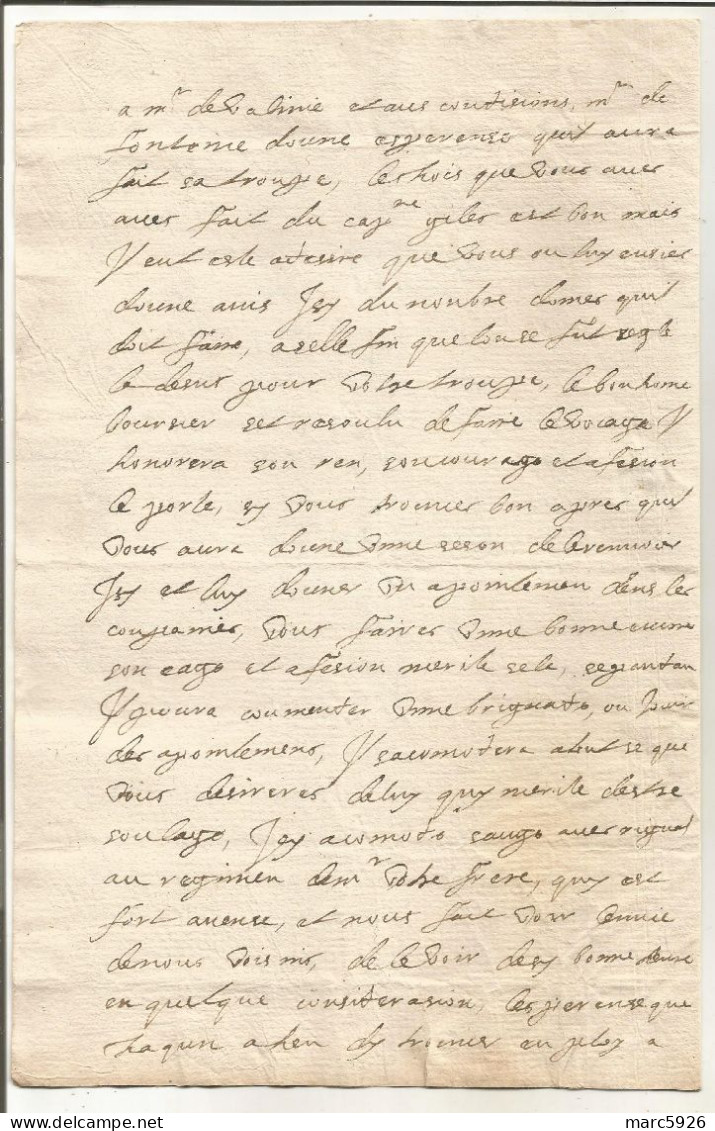 a mr de valinie et aus condisions, mr de
fonteine doune esperense quil aura
fait sa troupe, le chois que vous aues
aues fait du capne giles est bon mais
Il eut este a desire que vous ou luy eusies
doune auis Isy du nonbre domes quil
doit faire, a selle fin que lon se fut regle
la desus pour votre troupe, le bon home
boursier set resoulu de faire le voiage Il
honorera son ren, son courage et afesion
le porte, sy vous trouues bon apres quil
vous aura doune vnne seson de le renuoier
Isy et luy douner vn apointemen dens les
conpanies, vous faires vnne bonne euure
son eage et afesion merite sela, sepandan
Il poura coumender vnne briguade, ou Jouir
des apointemens, Il sacomodera a tout se que
vous desireres de luy quy merite destre
soulage, Jey acomode sauge auec rigual
au regimen de mr votre frere, quy est
fort auense, et nous fait voir lenuie
de nous voisins, de le voir de sy bonne eure
en quelque considerasion, lesperense que
chaqun a lieu dy trouuer enploy a
marc5926